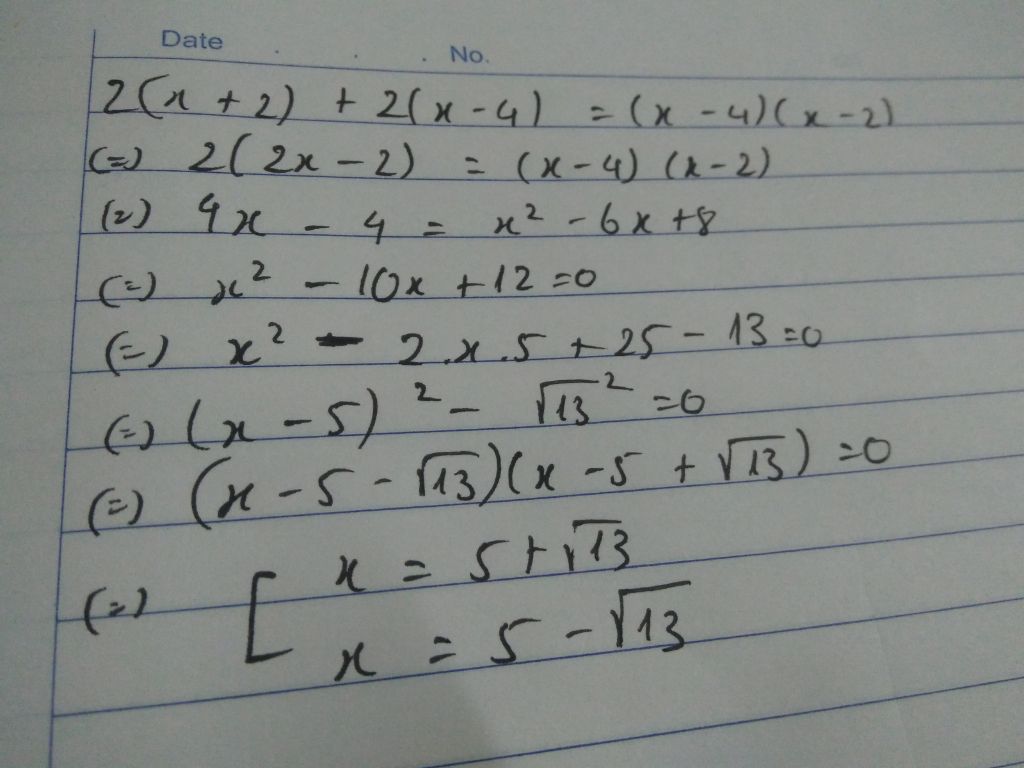 Date . . . No.
2(x + 2) + 2(x - 4) = (x - 4)(x - 2)
(=) 2(2x - 2) = (x - 4) (x - 2)
(=) 4x - 4 = x² - 6x + 8
(=) x² - 10x + 12 = 0
(=) x² - 2.x.5 + 25 - 13 = 0
(=) (x - 5)² - √13² = 0
(=) (x - 5 - √13)(x - 5 + √13) = 0
(=) [ x = 5 + √13
x = 5 - √13